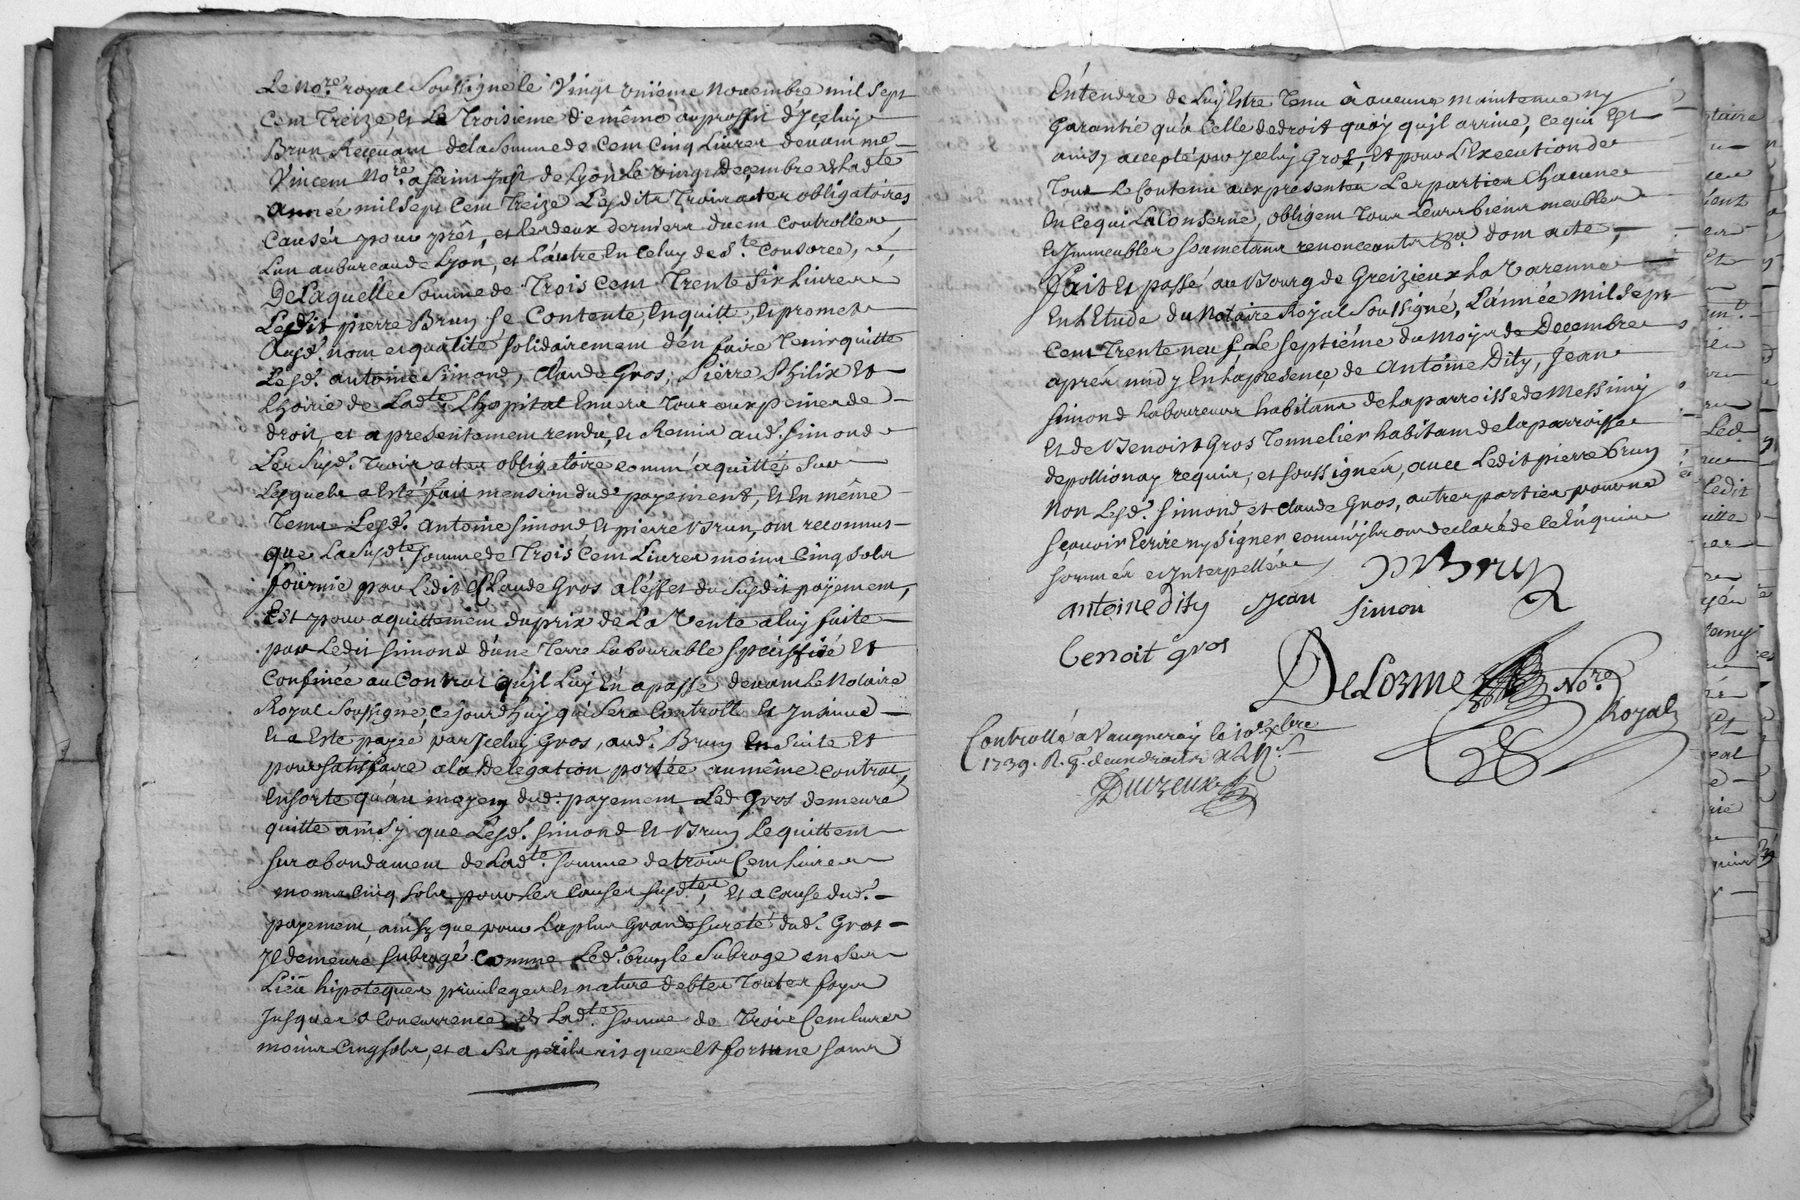 Le no.re royal soussigné le vingt uniéme novembre mil sept
cent treize, et le troisieme de même au proffit d'jceluy
Brun Reçevant de la somme de cent cinq livres devant me.
Vincent no.re a saint just de Lyon le vingt decembre et lad.te
année mil sept cent treize Lesdits trois actes obligatoires
causés pour prêt, et les deux derniers duem.t controllés
L'un au bureau de Lyon, et l'autre en celuy de s.te consorce,
De laquelle somme de trois cent trente six livres
Ledit pierre Brun se contente, en quitte, et promet
Ausd. nom et qualité solidairement d'en faire tenir quitte
Lesd. antoine Simond, Claude Gros, Pierre Philix et
L'hoirie de Lad.te L'hopital envers tous aux peines de
droit, et a presentement rendu, et Remis aud. Simond
Les susd. trois actes obligatoire comm'aquittés sur
Lesquels a esté fait mension dud. payement, et en même
Tems Lesd. antoine Simond et pierre Brun, ont reconnus
que La susd.te somme de Trois cent Livres moins cinq sols
fournie par Ledit Claude Gros a l'effet du susdit payement,
Est pour aquittement du prix de La Vente a luy faite
par Ledit Simond d'une Terre Labourable speciffiée et
Confinée au Contrat qu'jl Luy en a passé devant Le Notaire
Royal soussigné, cejourd'huy qui sera Controllé et jnsinué
et a esté payée par jceluy Gros, aud. Brun en suite et
pour satisfaire a la Delegation portée au même contrat,
En sorte qu'au moyen dud. payement Led. Gros demeure
quitte ainsy que Lesd. Simond et Brun Le quittent
surabondament de Lad.te somme de trois Cent Livres
moins cinq sols pour les causes susd.tes, et a cause dud.
payement, ainsy que pour La plus Grande sureté dud. Gros
jl demeure subrogé comme Led. brun le subroge en ses
Lieu hipoteques privileges et nature debtes toutes foys
jusques a concurrence et Lad.te somme de trois Cent livres
moins cinq sols, et a ses perils risques et fortune sans
Entendre de Luy Estre Tenu à aucune maintenue ny
Garantie qu'a Celle de droit quoy qu'jl arrive, ce qui Est
ainsy accepté par jceluy Gros, Et pour L'Execution de
Tout Le Contenu aux presentes Les parties Chacune
En ce qui La Conserne, obligent Tous Leurs biens meubles
et jmmeubles soumetant renonceants &a. dont acte,
Fait et passé au Bourg de Greizieux La Varenne
En L'Etude du Notaire Royal Soussigné, L'année mil sept
cent Trente neuf Le septiéme du mois de Decembre
aprés midy En la presence de Antoine Dity, Jean
Simond Laboureurs habitans de la parroisse de Messimy
Et de Benoist Gros Tonnelier habitant de la parroisse
de pollionay requis, et soussignés, avec Ledit pierre brun
Non Lesd. Simond et Claude Gros, autres parties pour ne
sçavoir Ecrire ny signer comm'jls ont declaré de ce Enquis
sommés et jnterpellés
P Brun
antoine dity jean simon
benoit gros
DeLorme No.re
Royal
Controllé a Vaugneray le 10e. Xbre
1739. R. g.